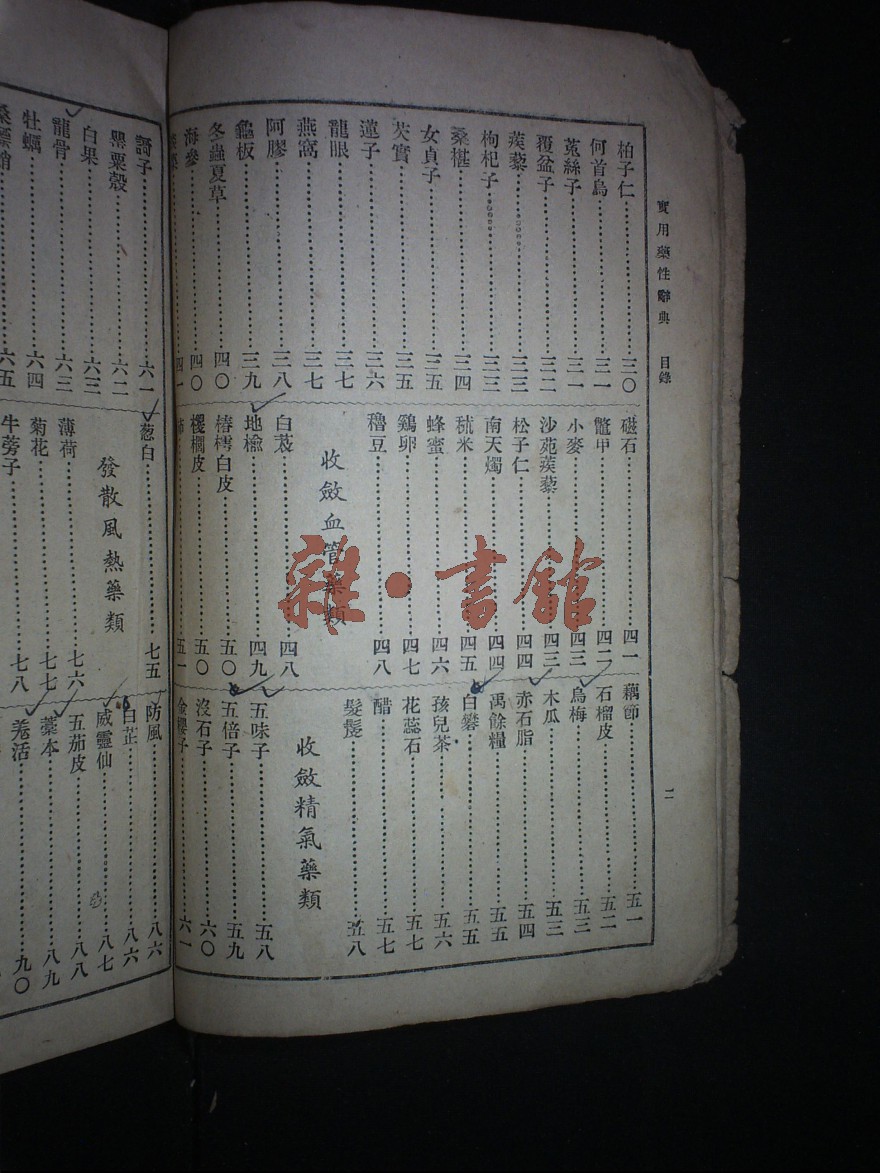 實用藥性辭典 目錄 二
柏子仁 三〇
何首烏 三一
菟絲子 三一
覆盆子 三二
蒺藜 三三
枸杞子 三三
桑椹 三四
女貞子 三五
芡實 三五
蓮子 三六
龍眼 三七
燕窩 三七
阿膠 三八
龜板 三九
冬蟲夏草 四〇
海參 四〇
四一
磁石 四一
鼈甲 四二
小麥 四三
沙苑蒺藜 四三
松子仁 四四
南天燭 四四
秫米 四五
蜂蜜 四六
鷄卵 四七
穭豆 四八
收斂血管藥類
白芨 四八
地楡 四九
椿樗白皮 五〇
椶櫚皮 五〇
五一
藕節 五一
石榴皮 五二
烏梅 五三
木瓜 五三
赤石脂 五四
禹餘糧 五五
白礬 五五
孩兒茶 五六
花蕊石 五七
醋 五七
髮髲 五八
收斂精氣藥類
五味子 五八
五倍子 五九
沒石子 六〇
金櫻子 六一
訶子 六一
罌粟殼 六二
白果 六三
龍骨 六三
牡蠣 六四
桑螵蛸 六五
葱白 七五
發散風熱藥類
薄荷 七六
菊花 七七
牛蒡子 七八
防風 八六
白芷 八六
威靈仙 八七
五茄皮 八八
藁本 八九
羗活 九〇
雜·書館